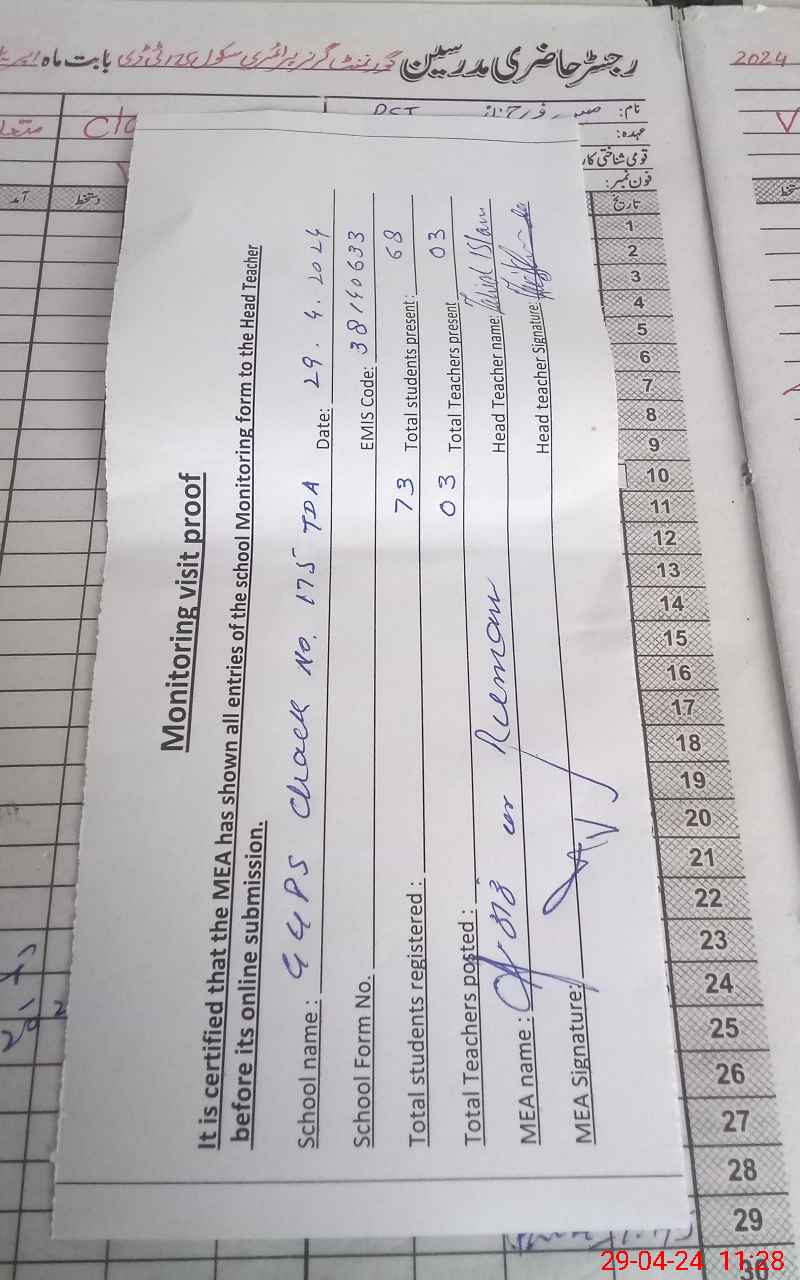 رجسٹر حاضری مدرسین گورنمنٹ گرلز پرائمری سکول بابت ماہ
2024
نام:
عہدہ:
قومی شناختی کار
فون نمبر:
تاریخ
دستخط
آمد
1
2
3
4
5
6
7
8
9
10
11
12
13
14
15
16
17
18
19
20
21
22
23
24
25
26
27
28
29
30
Monitoring visit proof
It is certified that the MEA has shown all entries of the school Monitoring form to the Head Teacher
before its online submission.
School name : GGPS Chack No. 175 TDA Date: 29.4.2024
School Form No. EMIS Code: 38140633
Total students registered : 73 Total students present: 68
Total Teachers posted : 03 Total Teachers present 03
MEA name : ur Rehman Head Teacher name: Islam
MEA Signature: Head teacher Signature:
29-04-24 11:28